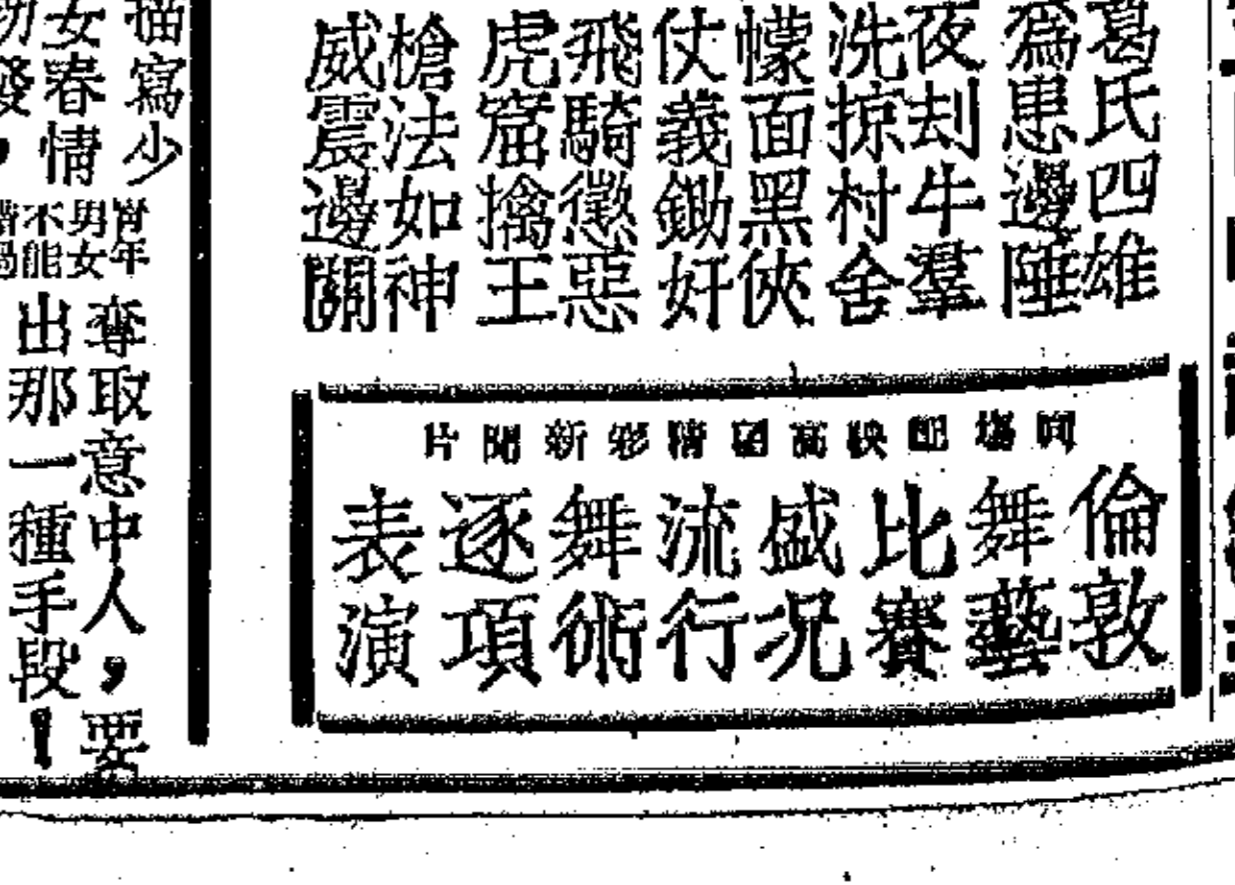 葛氏四雄
爲患邊陲
夜刦牛羣
洗掠村舍
幪面黑俠
仗義鋤奸
飛騎懲惡
虎窟擒王
槍法如神
威震邊關
同塲配映高超精彩新聞片
倫敦
舞藝
比賽
盛况
流行
舞術
逐項
表演
描寫少
女春情
男女
不能
奪取意中人，要
出那一種手段！